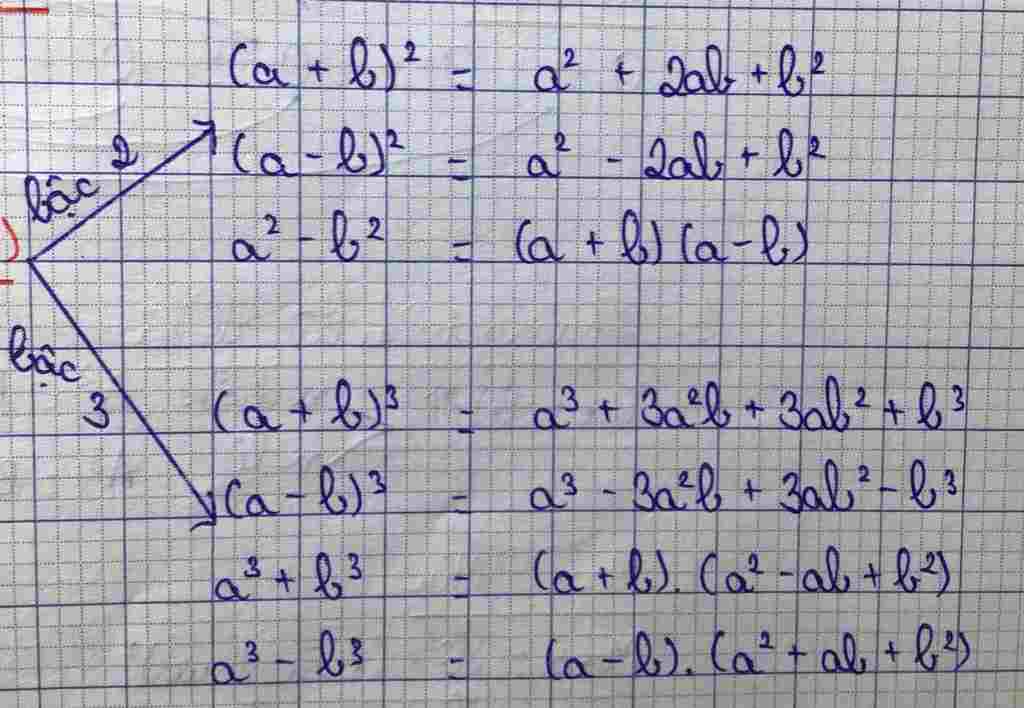 (a + b)² = a² + 2ab + b²
bậc 2
(a - b)² = a² - 2ab + b²
)
a² - b² = (a + b)(a - b)
bậc 3
(a + b)³ = a³ + 3a²b + 3ab² + b³
(a - b)³ = a³ - 3a²b + 3ab² - b³
a³ + b³ = (a + b).(a² - ab + b²)
a³ - b³ = (a - b).(a² + ab + b²)